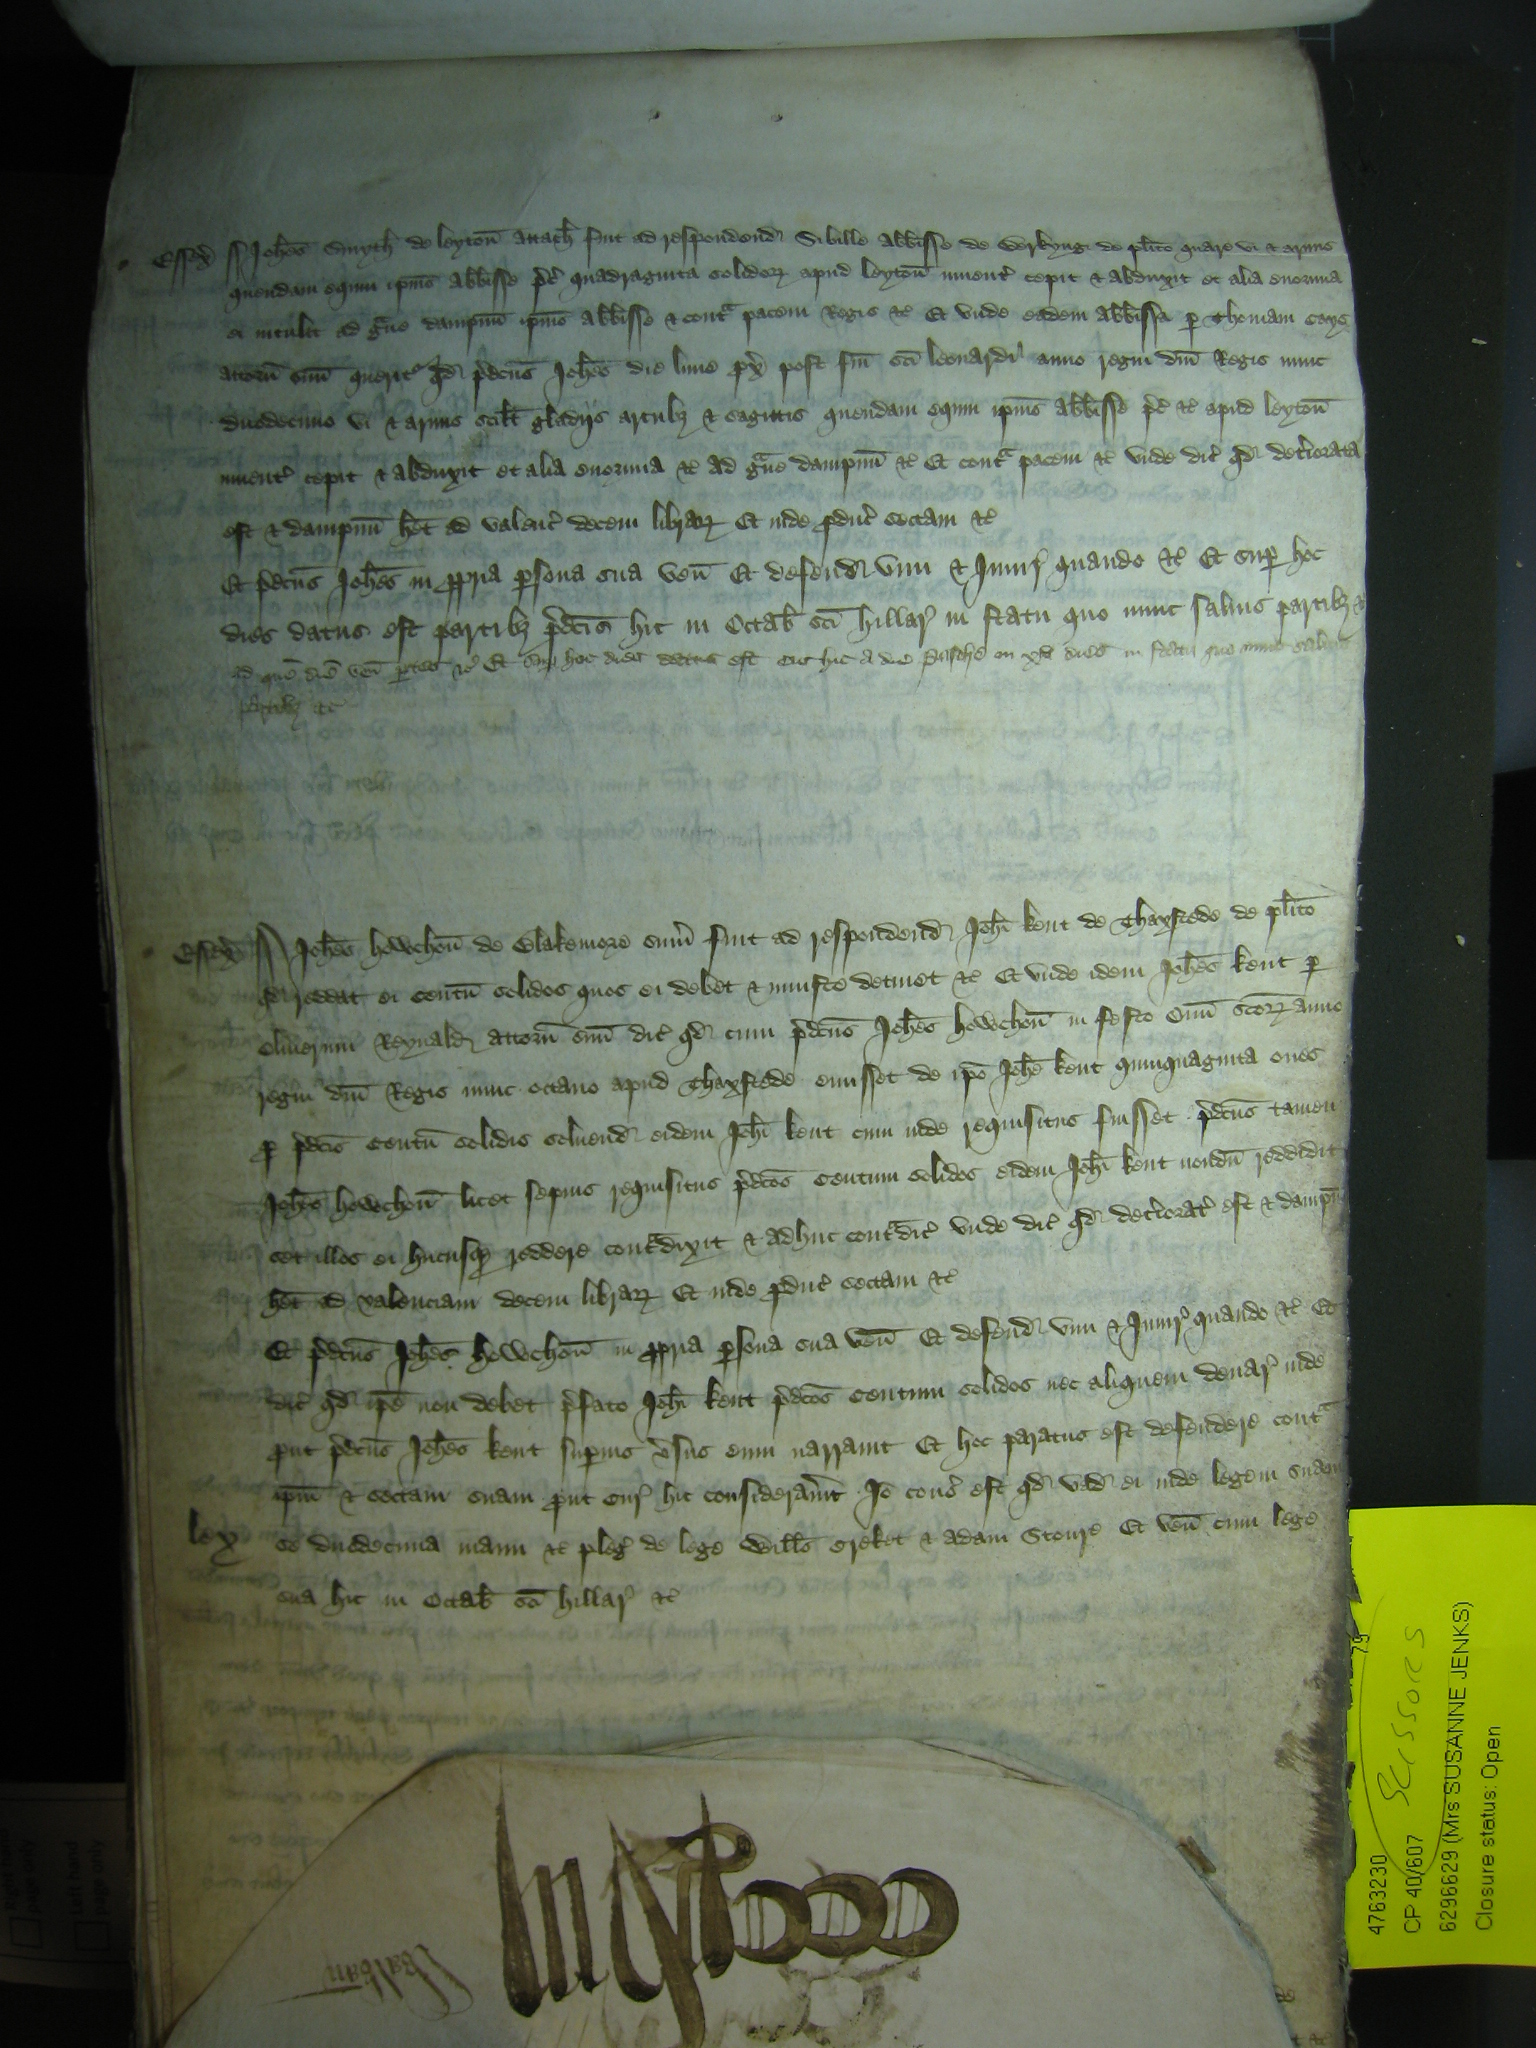 Essex ss Joh̄es Smyth de leyton̄ attach̄ fuit ad respondend̄ Sibille Abb̄isse de Berkyng de pl̄ito quare vi & armis
quendam equm ip̄ius Abb̄isse p̄c̄ quadraginta solidoꝝ apud leyton̄ inuent̄ cepit & abduxit et alia enormia
ei intulit ad g̃ue dampnū ip̄ius Abb̄isse & cont̃ pacem Regis &c̄ Et vnde eadem Abb̄issa ꝑ Thomam
attorn̄ suū querit̉ qd̄ p̄dc̄us Joh̄es die lune px̄ post fm̄ sc̄i leonardi anno regni dn̄i Regis nunc
duodecimo vi & armis scilt̄ gladijs arcubȝ & sagittis quendam equm ip̄ius Abb̄isse p̄c̄ &c̄ apud leyton̄
inuent̄ cepit & abduxit et alia enormia &c̄ ad g̃ue dampnū &c̄ Et cont̃ pacem &c̄ vnde dic̄ qd̄ det̉iorata
est & dampnū h̄et ad valenc̄ decem libraꝝ Et inde ꝓduc̄ sectam &c̄
Et p̄dc̄us Joh̄es in ꝓpria ꝑsona sua ven̄ Et defend̄ vim & Iniur̄ quando &c̄ Et suꝑ hoc
dies datus est partibȝ p̄dc̄is hic in Octab̄ sc̄i hillar̄ in statu quo nunc saluis partibȝ &c̄
ad quē diē ven̄ ꝑtes &c̄ Et suꝑ hoc dies datus est eis hic a die pasche in xv dies in statu quo nunc saluis
partibȝ &c̄
Essex ss Joh̄es howchon̄ de Blakemore sum̄ fuit ad respondend̄ Joh̄i kent de Thaxstede de pl̄ito
qd̄ reddat ei centū solidos quos ei debet & iniuste detinet &c̄ Et vnde idem Joh̄es kent ꝑ
Oliuerum Reynald̄ attorn̄ suū dic̄ qd̄ cum p̄dc̄us Joh̄es howchon̄ in festo Om̄i sc̄oꝝ anno
regni dn̄i Regis nunc octauo apud Thaxstede emisset de ip̄o Joh̄e kent quinquaginta oues
ꝓ p̄dc̄is centū solidis soluend̄ eidem Joh̄i kent cum inde requisitus fuisset p̄dc̄us tamen
Joh̄es howchon̄ licet sepius requisitus p̄dc̄os centum solidos eidem Joh̄i kent nondū reddidit
set illos ei hucusqȝ reddere cont̃dixit & adhuc cont̃dic̄ vnde dic̄ qd̄ det̉iorat̄ est & dampnū
h̄et ad valenciam decem libraꝝ Et inde ꝓduc̄ sectam &c̄
Et p̄dc̄us Joh̄es howchon̄ in ꝓpria ꝑsona sua ven̄ Et defend̄ vim & Iniur̄ quando &c̄ Et
dic̄ qd̄ ip̄e non debet p̄fato Joh̄i kent p̄dc̄os centum solidos nec aliquem denar̄ inde
ꝓut p̄dc̄us Joh̄es kent suꝑius ṽsus eum narrauit Et hoc paratus est defendere cont̃
ip̄m & sectam suam ꝓut Cur̄ hic considerau̓it Io cons̄ est qd̄ vad̄ ei inde legem suam
lex se duodecima manu &c̄ pleḡ de lege Will̄s Creket & Adam Stoure Et ven̄ cum lege
sua hic in Octab̄ sc̄i hillar̄ &c̄
4763230
CP 40/607 Scissors
6296629 (Mrs SUSANNE JENKS)
Closure status: Open
79